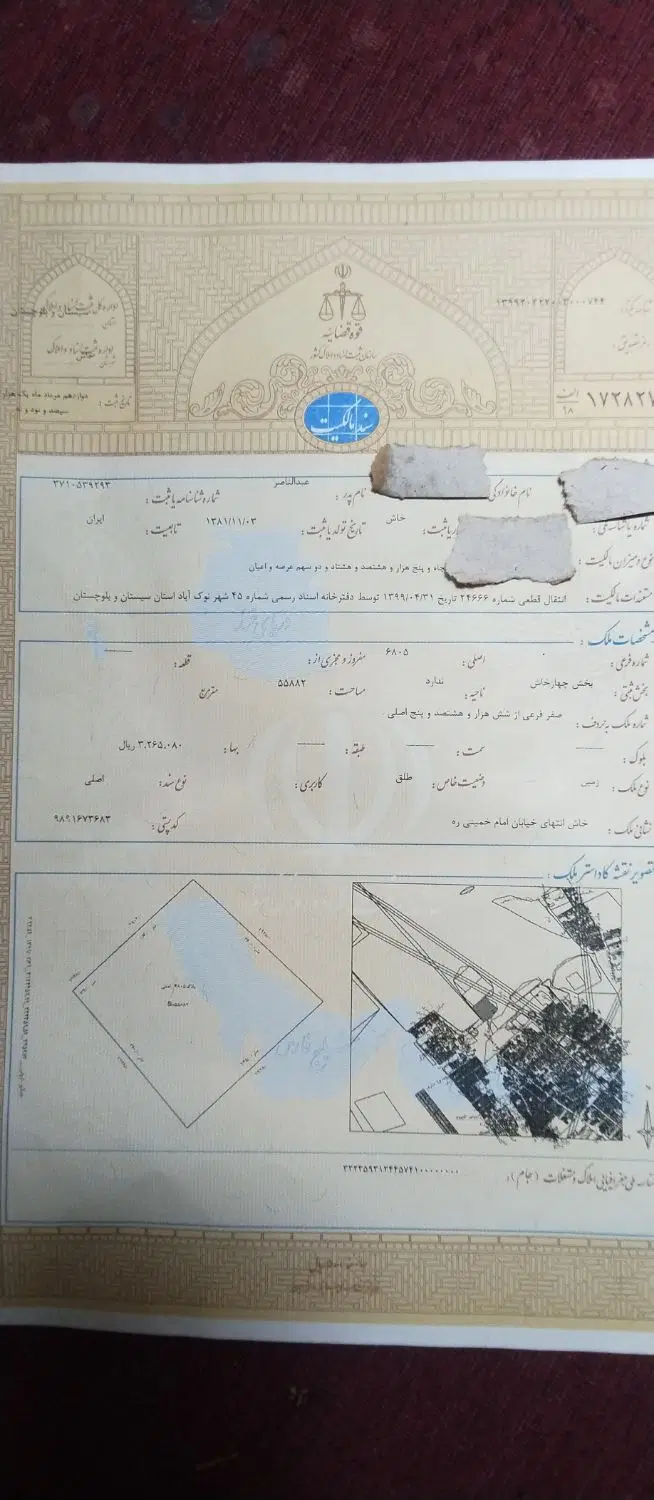 قوه قضائیه
سازمان ثبت اسناد و املاک کشور
سند مالکیت
سیستان و بلوچستان
اداره ثبت اسناد و املاک
تاریخ ثبت : دوازدهم مرداد ماه یک هزار
سیصد و نود و نه
الف
۹۸
نام خانوادگی
نام پدر : عبدالناصر
شماره شناسنامه یا ثبت : ۳۷۱۰۵۳۹۲۹۳
خاش
تاریخ تولد یا ثبت : ۱۳۸۱/۱۱/۰۳
تابعیت : ایران
نوع و میزان مالکیت :
پنج هزار و هشتصد و هشتاد و دو سهم عرصه و اعیان
مستندات مالکیت : انتقال قطعی شماره ۲۴۶۶۶ تاریخ ۱۳۹۹/۰۴/۳۱ توسط دفترخانه اسناد رسمی شماره ۴۵ شهر نوک آباد استان سیستان و بلوچستان
مشخصات ملک :
شماره فرعی : ۰
اصلی : ۶۸۰۵
مفروز و مجزی از :
قطعه :
بخش ثبتی : بخش چهارخاش
ناحیه : ندارد
مساحت : ۵۵۸۸۲ مترمربع
شماره ملک به حروف : صفر فرعی از شش هزار و هشتصد و پنج اصلی
بلوک :
سمت :
طبقه :
بهاء : ۳,۲۶۵,۰۸۰ ریال
نوع ملک : زمین
وضعیت خاص : طلق
کاربری :
نوع سند : اصلی
نشانی ملک : خاش انتهای خیابان امام خمینی ره
کدپستی : ۹۸۹۱۶۷۳۶۸۳
تصویر نقشه کاداستر ملک :
دریای خزر
خلیج فارس
شناسه ملی جغرافیایی املاک و مستغلات (جام) :